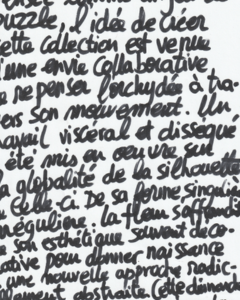 puzzle, l'idée de créer
cette collection est venue
d'une envie collaborative
repenser l'orchydée à tra-
vers son mouvement. Un
travail viscéral et disséqué
été mis en oeuvre sur
la globalité de la silhouette
celle-ci. De sa forme singulière
irrégulière, la fleur s'affranchit
son esthétique souvent déco-
rative pour donner naissance
une nouvelle approche radic-
alement abstraite. Cette démarche